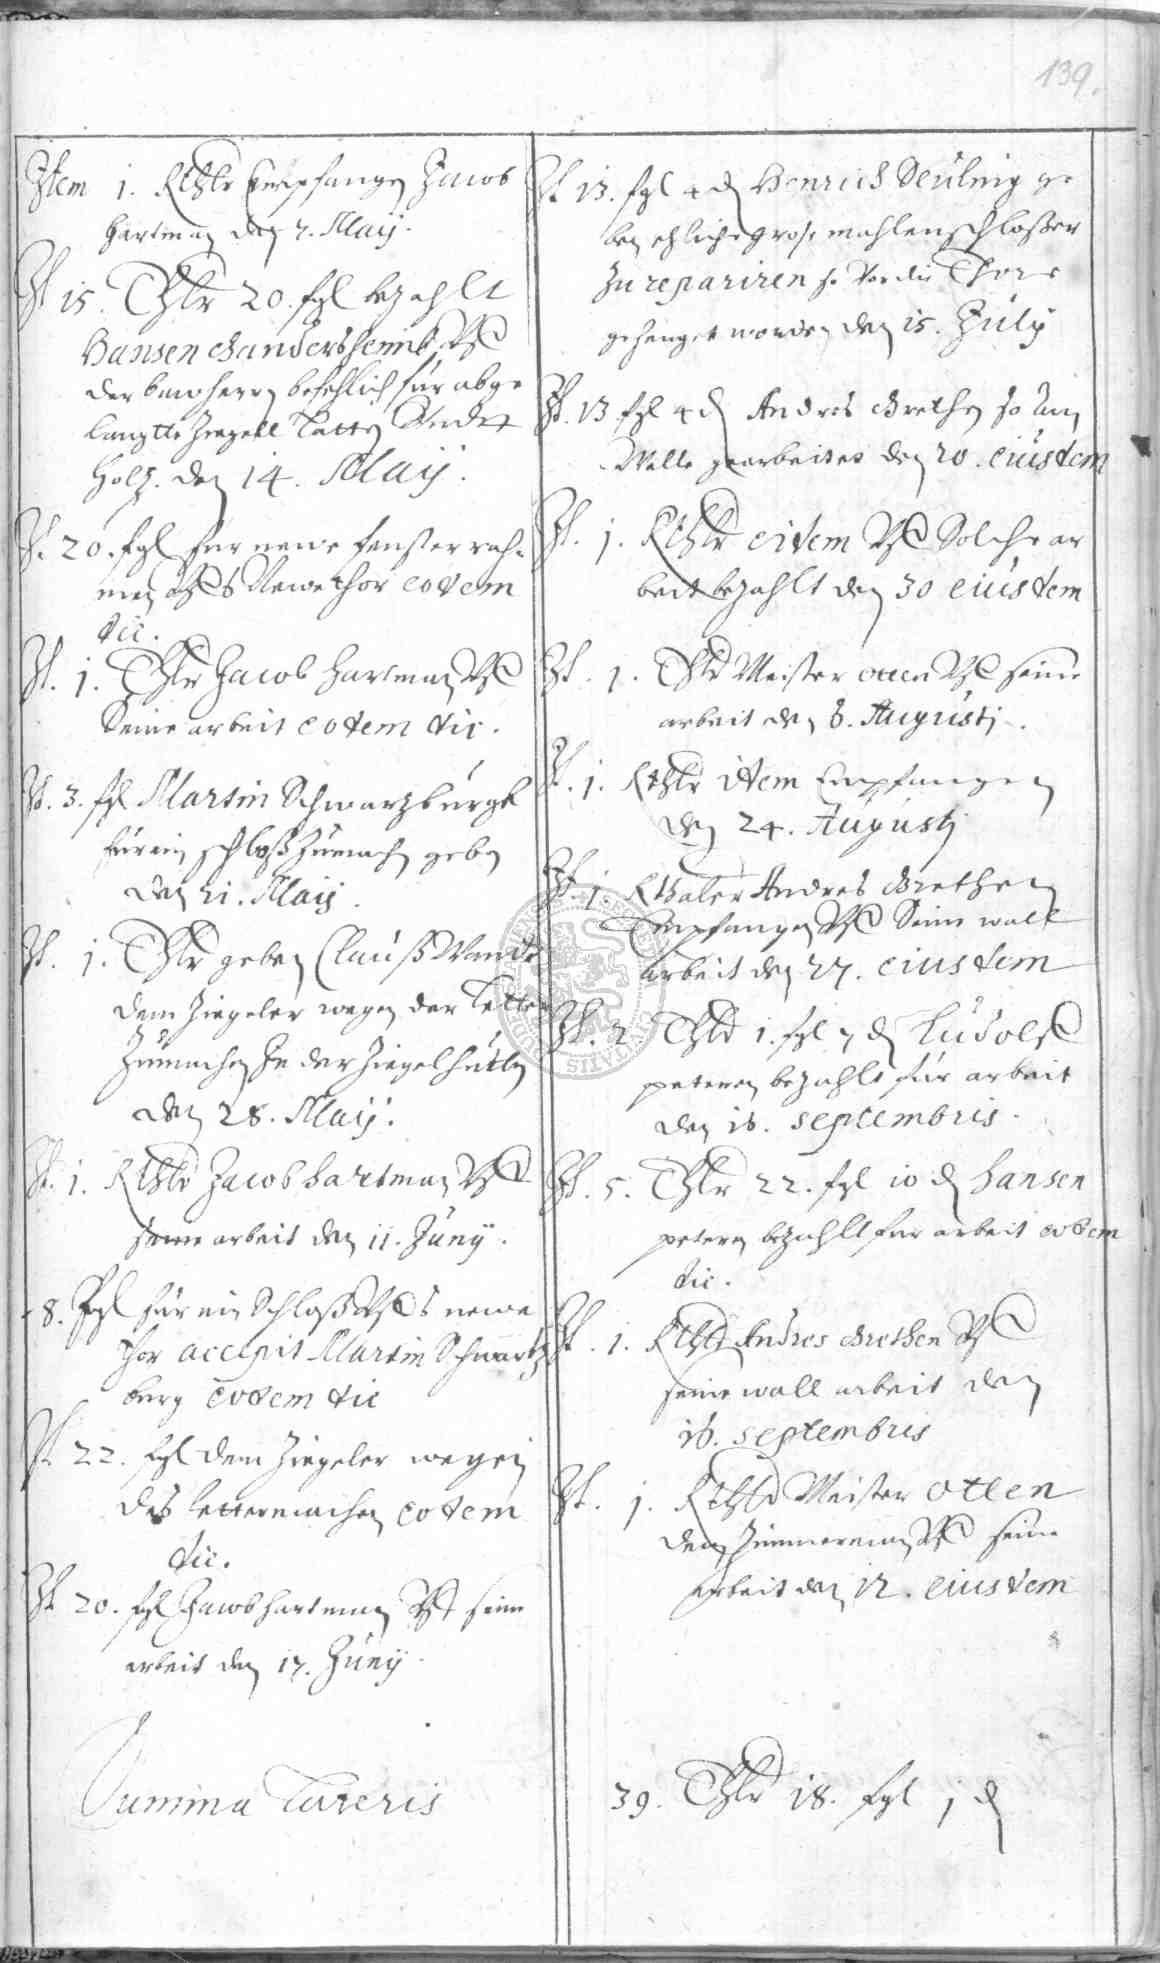 139.
Item 1. Rthlr Empfangen Jacob
Hartman den 7. Maij.
It 15. Thlr 20. fgl bezahlt
Hansen Gandersheimb
der bawherrn befehlich für abge
langtte Ziegell Latten
Holtz. den 14. Maij.
It. 20. fgl für newe fenster rah-
men Newe thor eodem
die.
It. 1. Thlr Jacob Hartman
Seine arbeit eodem die.
It. 3. fgl Martin Schwartzburgk
für ein schloß zumachen geben
den 21. Maij.
It. 1. Thlr geben Clauß
dem Ziegeler wegen der
Zumachen In der Ziegelhütten
den 28. Maij.
It. 1. Rthlr Jacob Hartman
seine arbeit den 11. Junij.
8. fgl für ein Schloß newe
thor accepit Martin Schwartz
burg eodem die
It. 22. fgl dem Ziegeler wegen
des eodem
die.
It 20. fgl Jacob Hartman seine
arbeit den 17. Junij.
Summa Lateris
It 13. fgl 4 d Henrich Seuling ge
ben etliche große mahlenschloßer
zu repariren so Vor die Thore
gehenget worden den 15. July
It. 13 fgl 4 d Andres Grethen so am
Walle gearbeitet den 20. eiusdem
It. 1. Rthlr eidem Solche ar
beit bezahlt den 30 eiusdem
It. 1. Thlr Meister Otten seine
arbeit den 8. Augusti.
It. 1. Rthlr idem Empfangen
den 24. Augusti
It 1. Rthaler Andres Grethen
Empfangen Seine wall
arbeit den 27. eiusdem
It. 2 Thlr 1. fgl 7 d Ludolff
peteren bezahlt für arbeit
den 16. septembris.
It. 5. Thlr 22. fgl 10 d Hansen
petern bezahlt für arbeit eodem
die.
It. 1. Rthlr Andres Grethen
seine wall arbeit den
16. septembris
It. 1. Rthlr Meister Otten
dem Zimmerman seine
arbeit den 12. eiusdem
39. Thlr 18. fgl 1 d